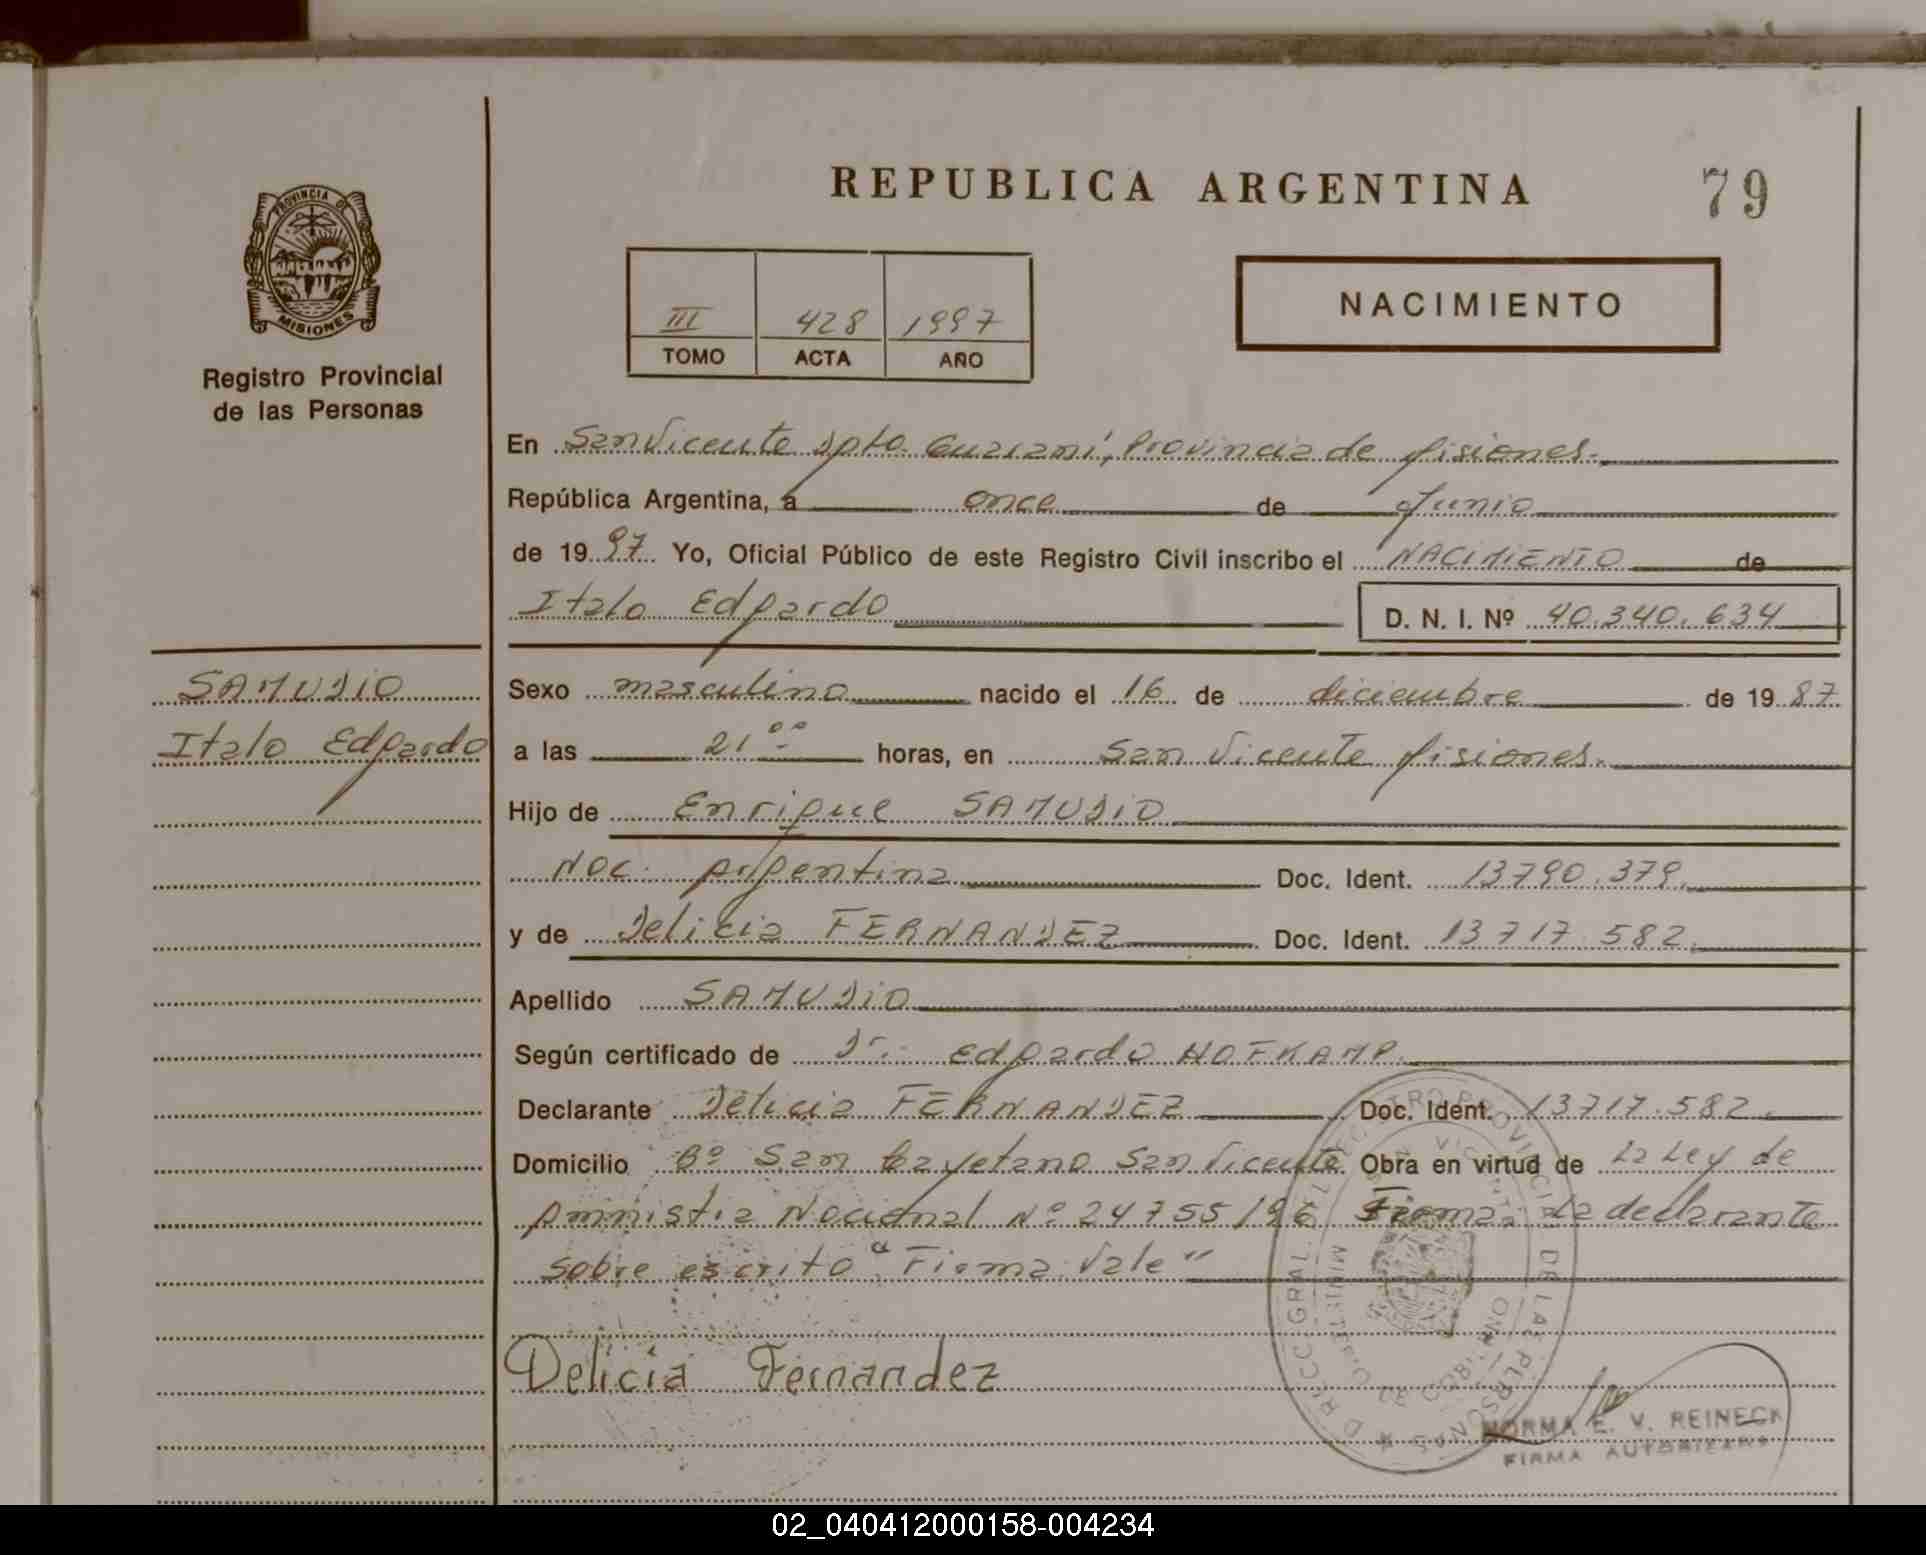 REPUBLICA ARGENTINA
79
PROVINCIA DE
MISIONES
Registro Provincial
de las Personas
III 428 1997
TOMO ACTA AÑO
NACIMIENTO
En San Vicente Dpto. Guarani, Provincia de Misiones.
República Argentina, a once de Junio
de 1997 Yo, Oficial Público de este Registro Civil inscribo el NACIMIENTO de
Italo Edgardo D. N. I. Nº 40.340.634
SAMUDIO
Italo Edgardo
Sexo masculino nacido el 16 de diciembre de 1987
a las 21 ºº horas, en San Vicente Misiones.
Hijo de Enrique SAMUDIO
Nac. Argentina Doc. Ident. 13790.379.
y de Delicia FERNANDEZ Doc. Ident. 13717.582.
Apellido SAMUDIO
Según certificado de Dr. Edgardo HOFKAMP.
Declarante Delicia FERNANDEZ Doc. Ident. 13717.582.
Domicilio Bº San Cayetano San Vicente Obra en virtud de La Ley de
Amnistia Nacional Nº 24755/96 Firma: La declarante
sobre escrito "Firma. Vale"
Delicia Fernandez
NORMA E. V. REINECK
FIRMA AUTORIZADA
02_040412000158-004234